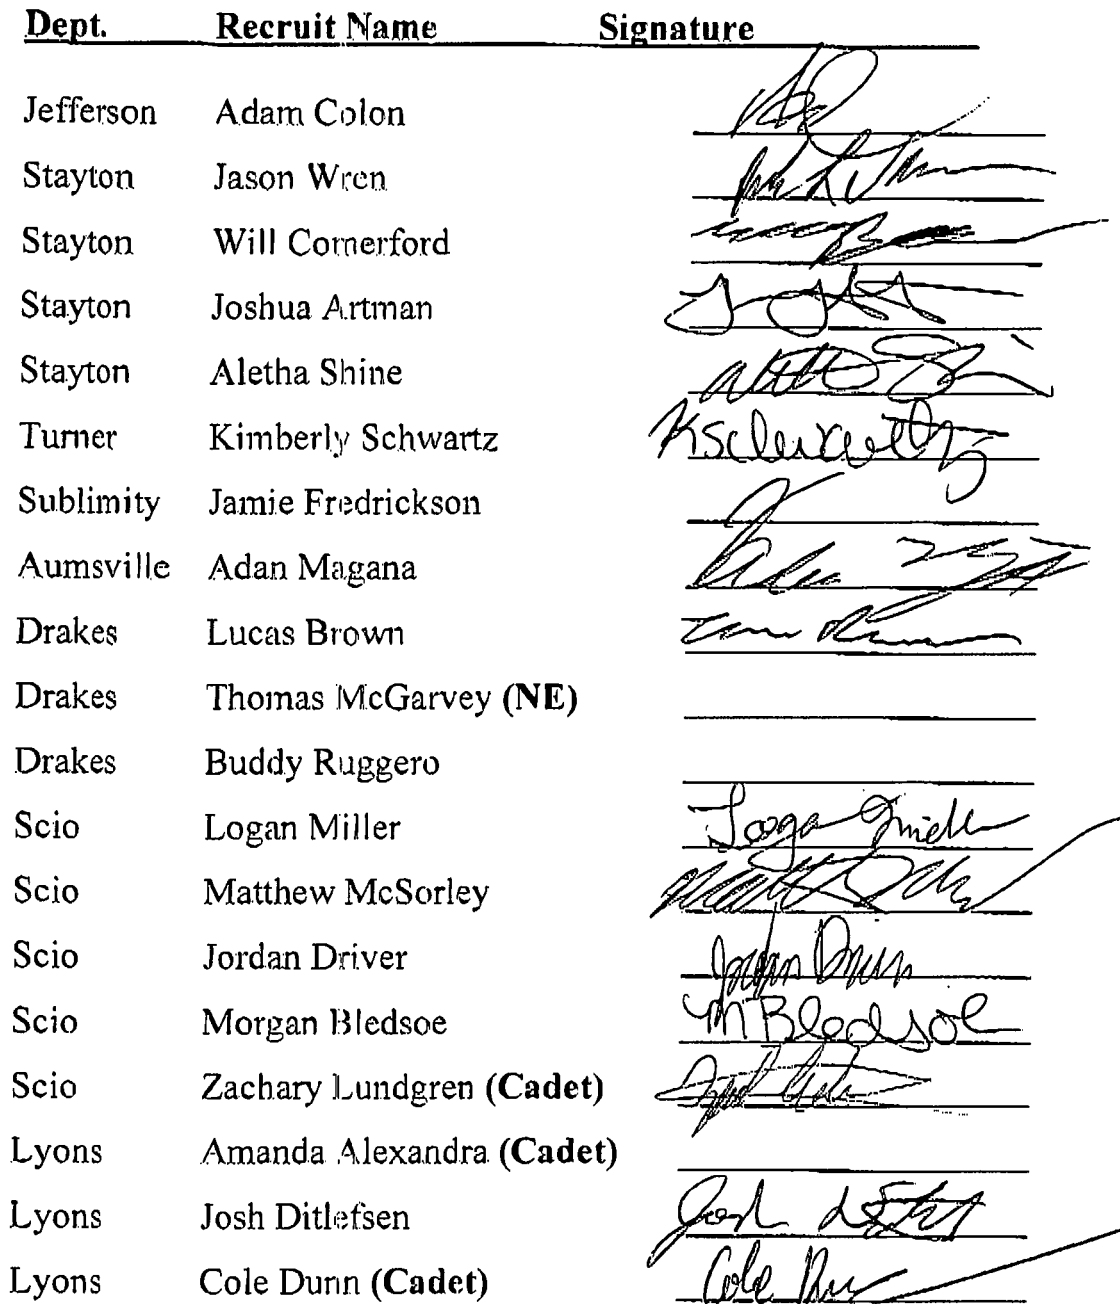 Dept. Recruit Name Signature
Jefferson Adam Colon
Stayton Jason Wren
Stayton Will Comerford
Stayton Joshua Artman
Stayton Aletha Shine
Turner Kimberly Schwartz KSchwartz
Sublimity Jamie Fredrickson
Aumsville Adan Magana
Drakes Lucas Brown
Drakes Thomas McGarvey (NE)
Drakes Buddy Ruggero
Scio Logan Miller Logan Miller
Scio Matthew McSorley
Scio Jordan Driver Jordan Driver
Scio Morgan Bledsoe MBledsoe
Scio Zachary Lundgren (Cadet)
Lyons Amanda Alexandra (Cadet)
Lyons Josh Ditlefsen Josh
Lyons Cole Dunn (Cadet) Cole Dunn